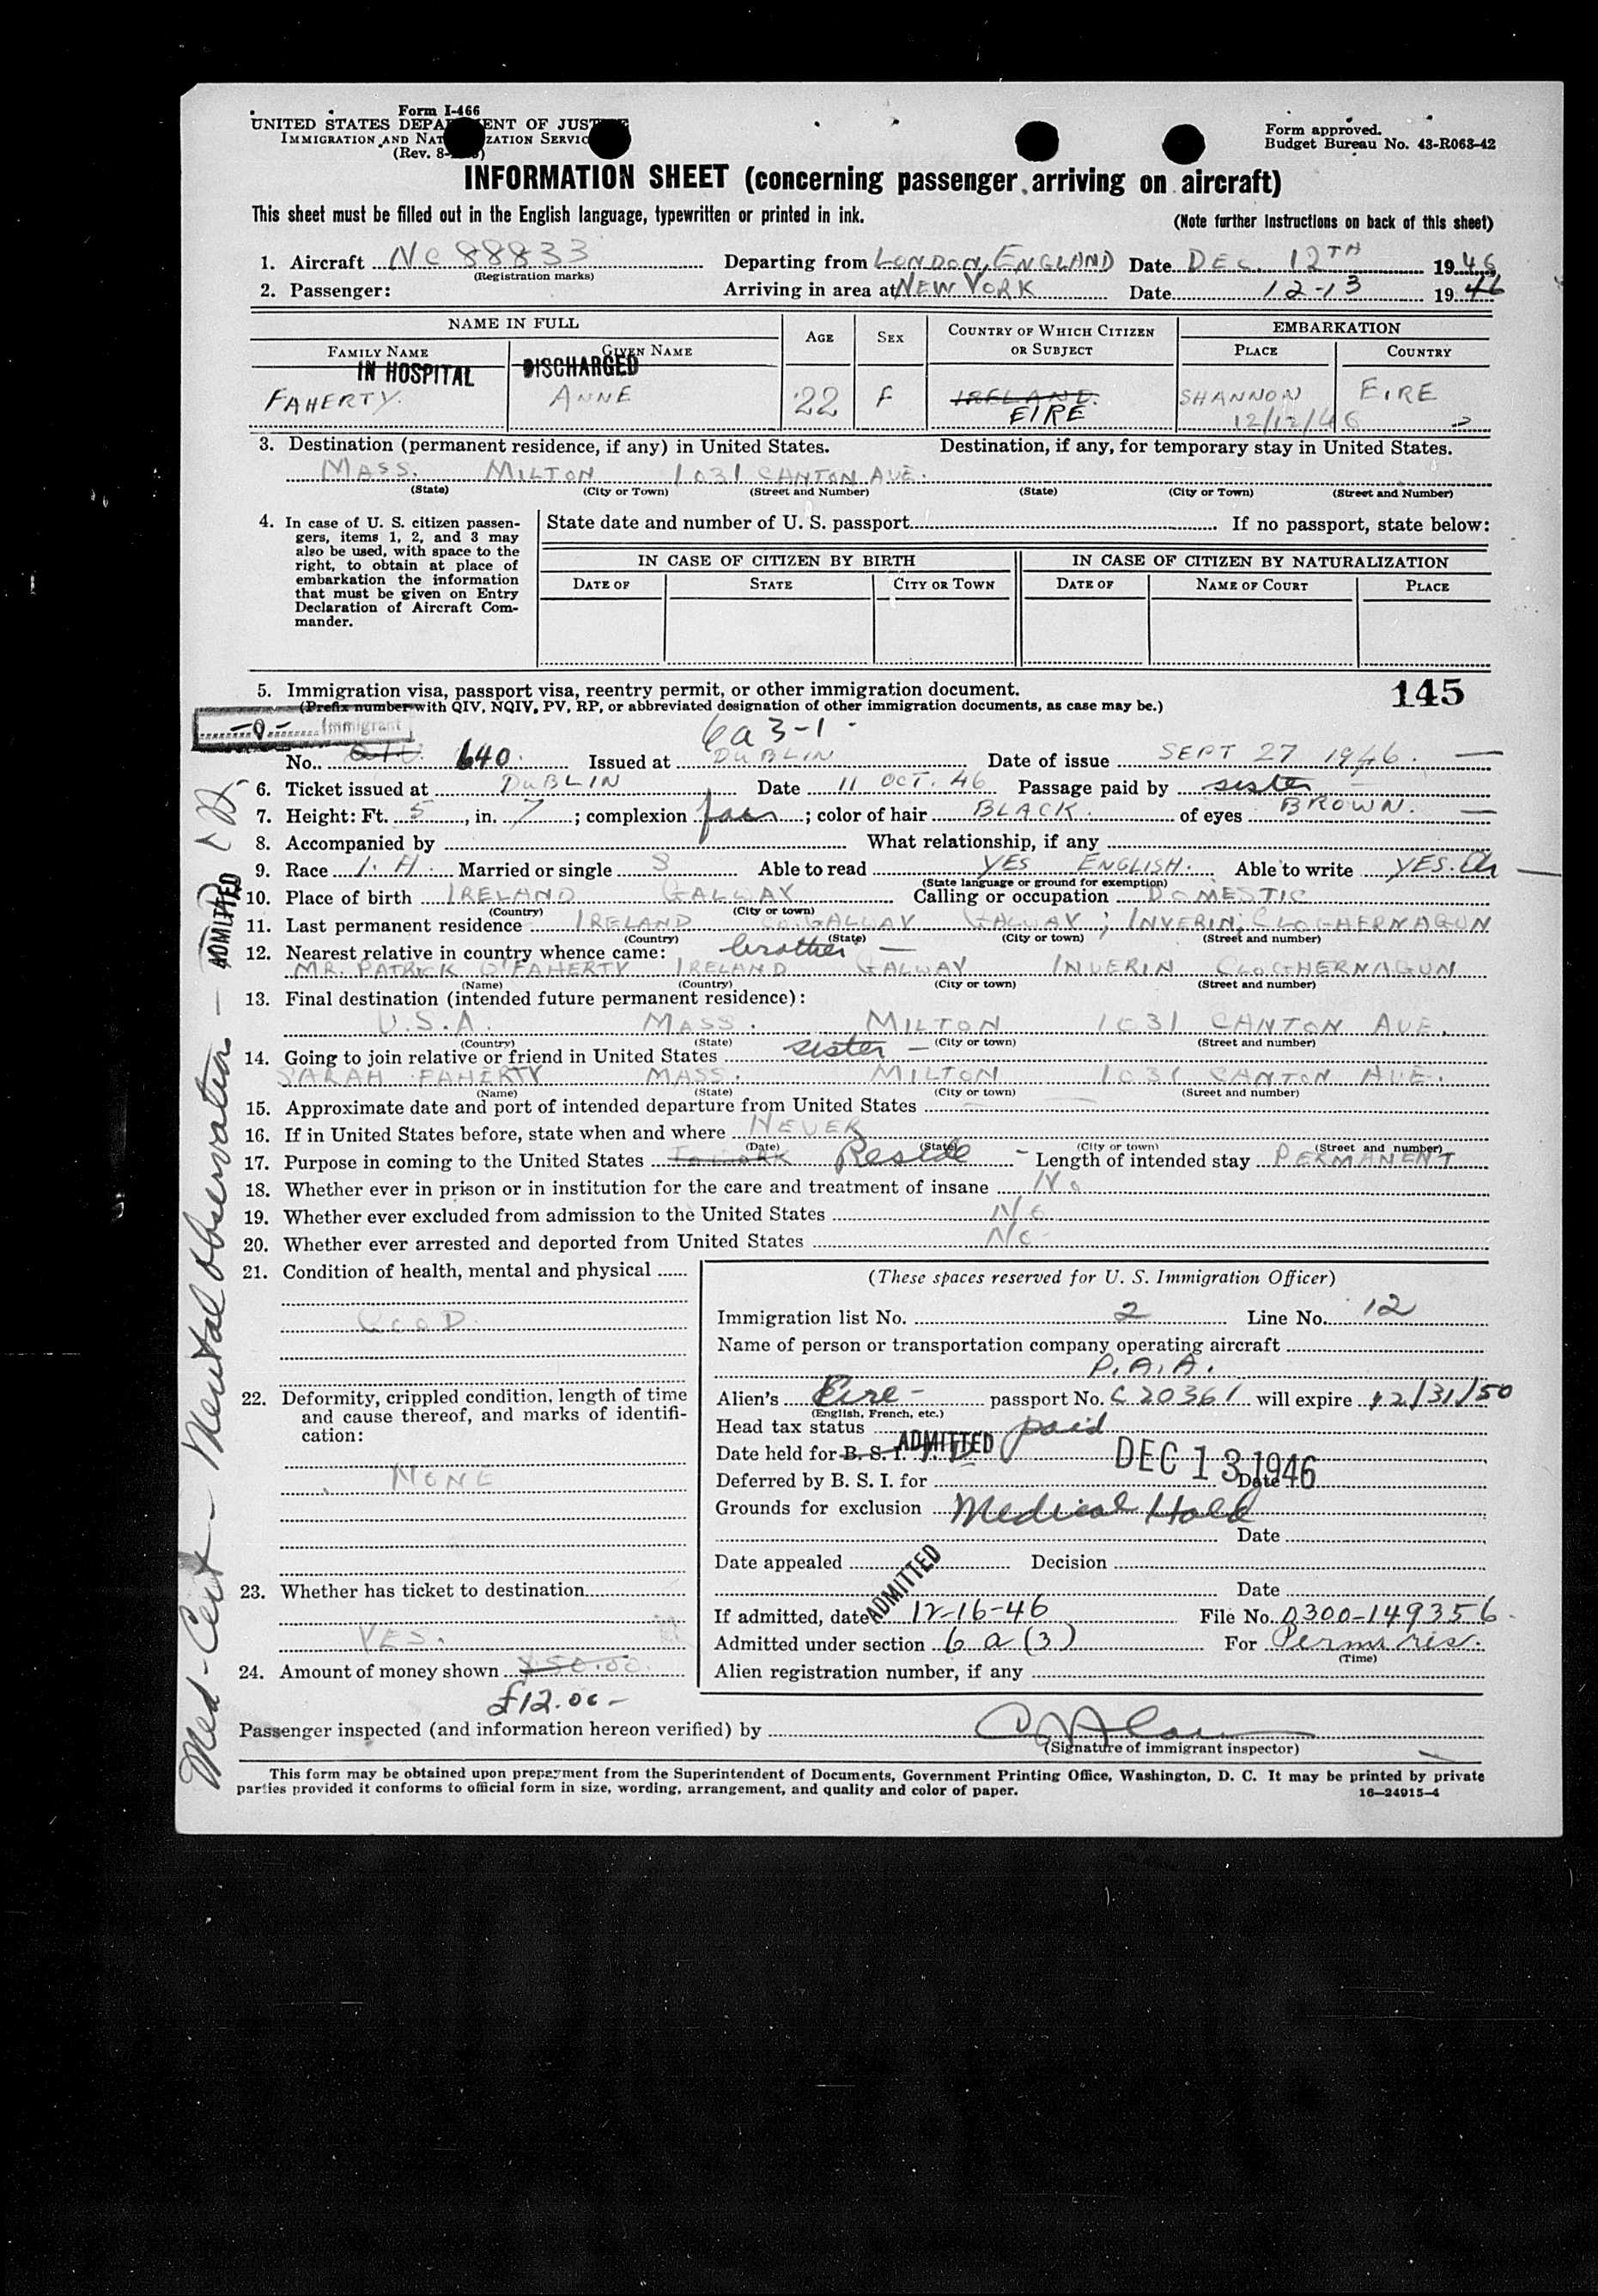 Form I-466
UNITED STATES DEPARTMENT OF JUSTICE
IMMIGRATION AND NATURALIZATION SERVICE
(Rev. 8-
Form approved.
Budget Bureau No. 43-R063-42
INFORMATION SHEET (concerning passenger arriving on aircraft)
This sheet must be filled out in the English language, typewritten or printed in ink.
(Note further instructions on back of this sheet)
1. Aircraft NC 88833 Departing from LONDON, ENGLAND Date DEC. 12TH 1946
(Registration marks)
2. Passenger: Arriving in area at NEW YORK Date 12-13 1946
NAME IN FULL AGE SEX COUNTRY OF WHICH CITIZEN OR SUBJECT EMBARKATION
FAMILY NAME GIVEN NAME PLACE COUNTRY
IN HOSPITAL DISCHARGED
FAHERTY ANNE 22 F IRELAND. EIRE SHANNON EIRE
12/12/46
3. Destination (permanent residence, if any) in United States. Destination, if any, for temporary stay in United States.
MASS. MILTON 1031 CANTON AVE.
(State) (City or Town) (Street and Number) (State) (City or Town) (Street and Number)
4. In case of U. S. citizen passengers, items 1, 2, and 3 may also be used, with space to the right, to obtain at place of embarkation the information that must be given on Entry Declaration of Aircraft Commander.
State date and number of U. S. passport If no passport, state below:
IN CASE OF CITIZEN BY BIRTH IN CASE OF CITIZEN BY NATURALIZATION
DATE OF STATE CITY OR TOWN DATE OF NAME OF COURT PLACE
5. Immigration visa, passport visa, reentry permit, or other immigration document.
145
(Prefix number with QIV, NQIV, PV, RP, or abbreviated designation of other immigration documents, as case may be.)
-Q- Immigrant
6a3-1
No. 640. Issued at DUBLIN Date of issue SEPT 27 1946.
6. Ticket issued at DUBLIN Date 11 OCT. 46 Passage paid by sister
7. Height: Ft. 5, in. 7; complexion fair; color of hair BLACK. of eyes BROWN.
8. Accompanied by What relationship, if any
9. Race I. H. Married or single S Able to read YES ENGLISH. Able to write YES.
(State language or ground for exemption)
10. Place of birth IRELAND GALWAY Calling or occupation DOMESTIC
(Country) (City or town)
11. Last permanent residence IRELAND CO. GALWAY GALWAY; INVERIN; CLOGHERNAGUN
(Country) (State) (City or town) (Street and number)
12. Nearest relative in country whence came: brother -
MR. PATRICK O'FAHERTY IRELAND GALWAY INVERIN CLOGHERNAGUN
(Name) (Country) (City or town) (Street and number)
13. Final destination (intended future permanent residence):
U.S.A. MASS. MILTON 1031 CANTON AVE.
(Country) (State) (City or town) (Street and number)
14. Going to join relative or friend in United States sister -
SARAH FAHERTY MASS. MILTON 1031 CANTON AVE.
(Name) (State) (City or town) (Street and number)
15. Approximate date and port of intended departure from United States
16. If in United States before, state when and where NEVER
(Date) (State) (City or town) (Street and number)
17. Purpose in coming to the United States TO WORK Reside - Length of intended stay PERMANENT
18. Whether ever in prison or in institution for the care and treatment of insane No
19. Whether ever excluded from admission to the United States No
20. Whether ever arrested and deported from United States No
21. Condition of health, mental and physical
GOOD.
22. Deformity, crippled condition, length of time and cause thereof, and marks of identification:
NONE
23. Whether has ticket to destination
YES.
24. Amount of money shown $50.00.
£12.00-
(These spaces reserved for U. S. Immigration Officer)
Immigration list No. 2 Line No. 12
Name of person or transportation company operating aircraft
P.A.A.
Alien's Eire- passport No. C 20361 will expire 12/31/50
(English, French, etc.)
Head tax status paid
Date held for B. S. I. ADMITTED DEC 13 1946
Deferred by B. S. I. for Date
Grounds for exclusion Medical Hold
Date
Date appealed Decision
Date
ADMITTED
If admitted, date 12-16-46 File No. 0300-149356
Admitted under section 6 a (3) For Perm. res.
(Time)
Alien registration number, if any
Passenger inspected (and information hereon verified) by
(Signature of immigrant inspector)
This form may be obtained upon prepayment from the Superintendent of Documents, Government Printing Office, Washington, D. C. It may be printed by private
parties provided it conforms to official form in size, wording, arrangement, and quality and color of paper.
16-24915-4
Med-Cert - Mental observation - ADMITTED